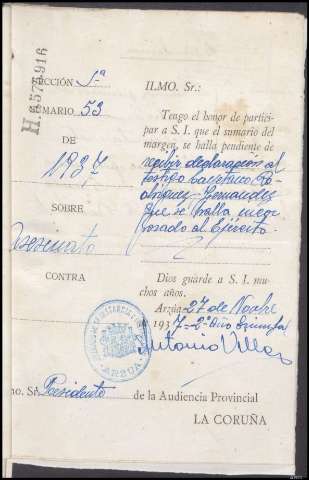 H.8577916
SECCIÓN 1ª
SUMARIO 53
DE
1937
SOBRE
Asesinato
CONTRA
ILMO. Sr.:
Tengo el honor de partici-
par a S. I. que el sumario del
margen, se halla pendiente de
recibir declaración al
testigo
Rodríguez Fernández
que se halla incor
porado al Ejército.
Dios guarde a S. I. mu-
chos años.
Arzúa 27 de Novbre
1937-2º Año Triunfal
Antonio Villar
ARZUA
mo. Sr. Presidente de la Audiencia Provincial
LA CORUÑA